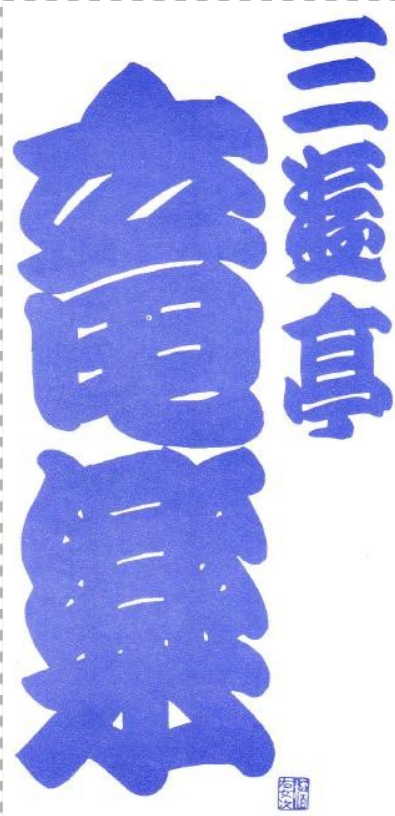 三遊亭
竜楽